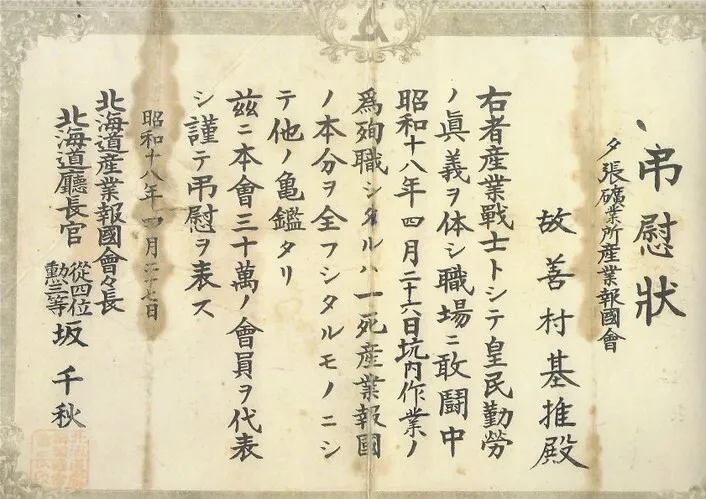 吊慰狀
夕張礦業所産業報國會
故善村基推殿
右者産業戰士トシテ皇民勤勞
ノ眞義ヲ体シ職場ニ敢鬪中
昭和十八年四月二十六日坑内作業ノ
爲殉職シタルハ一死産業報國
ノ本分ヲ全フシタルモノニシ
テ他ノ亀鑑タリ
茲ニ本會三十萬ノ會員ヲ代表
シ謹テ吊慰ヲ表ス
昭和十八年四月二十七日
北海道産業報國會々長
北海道廳長官 從四位勳三等 坂千秋